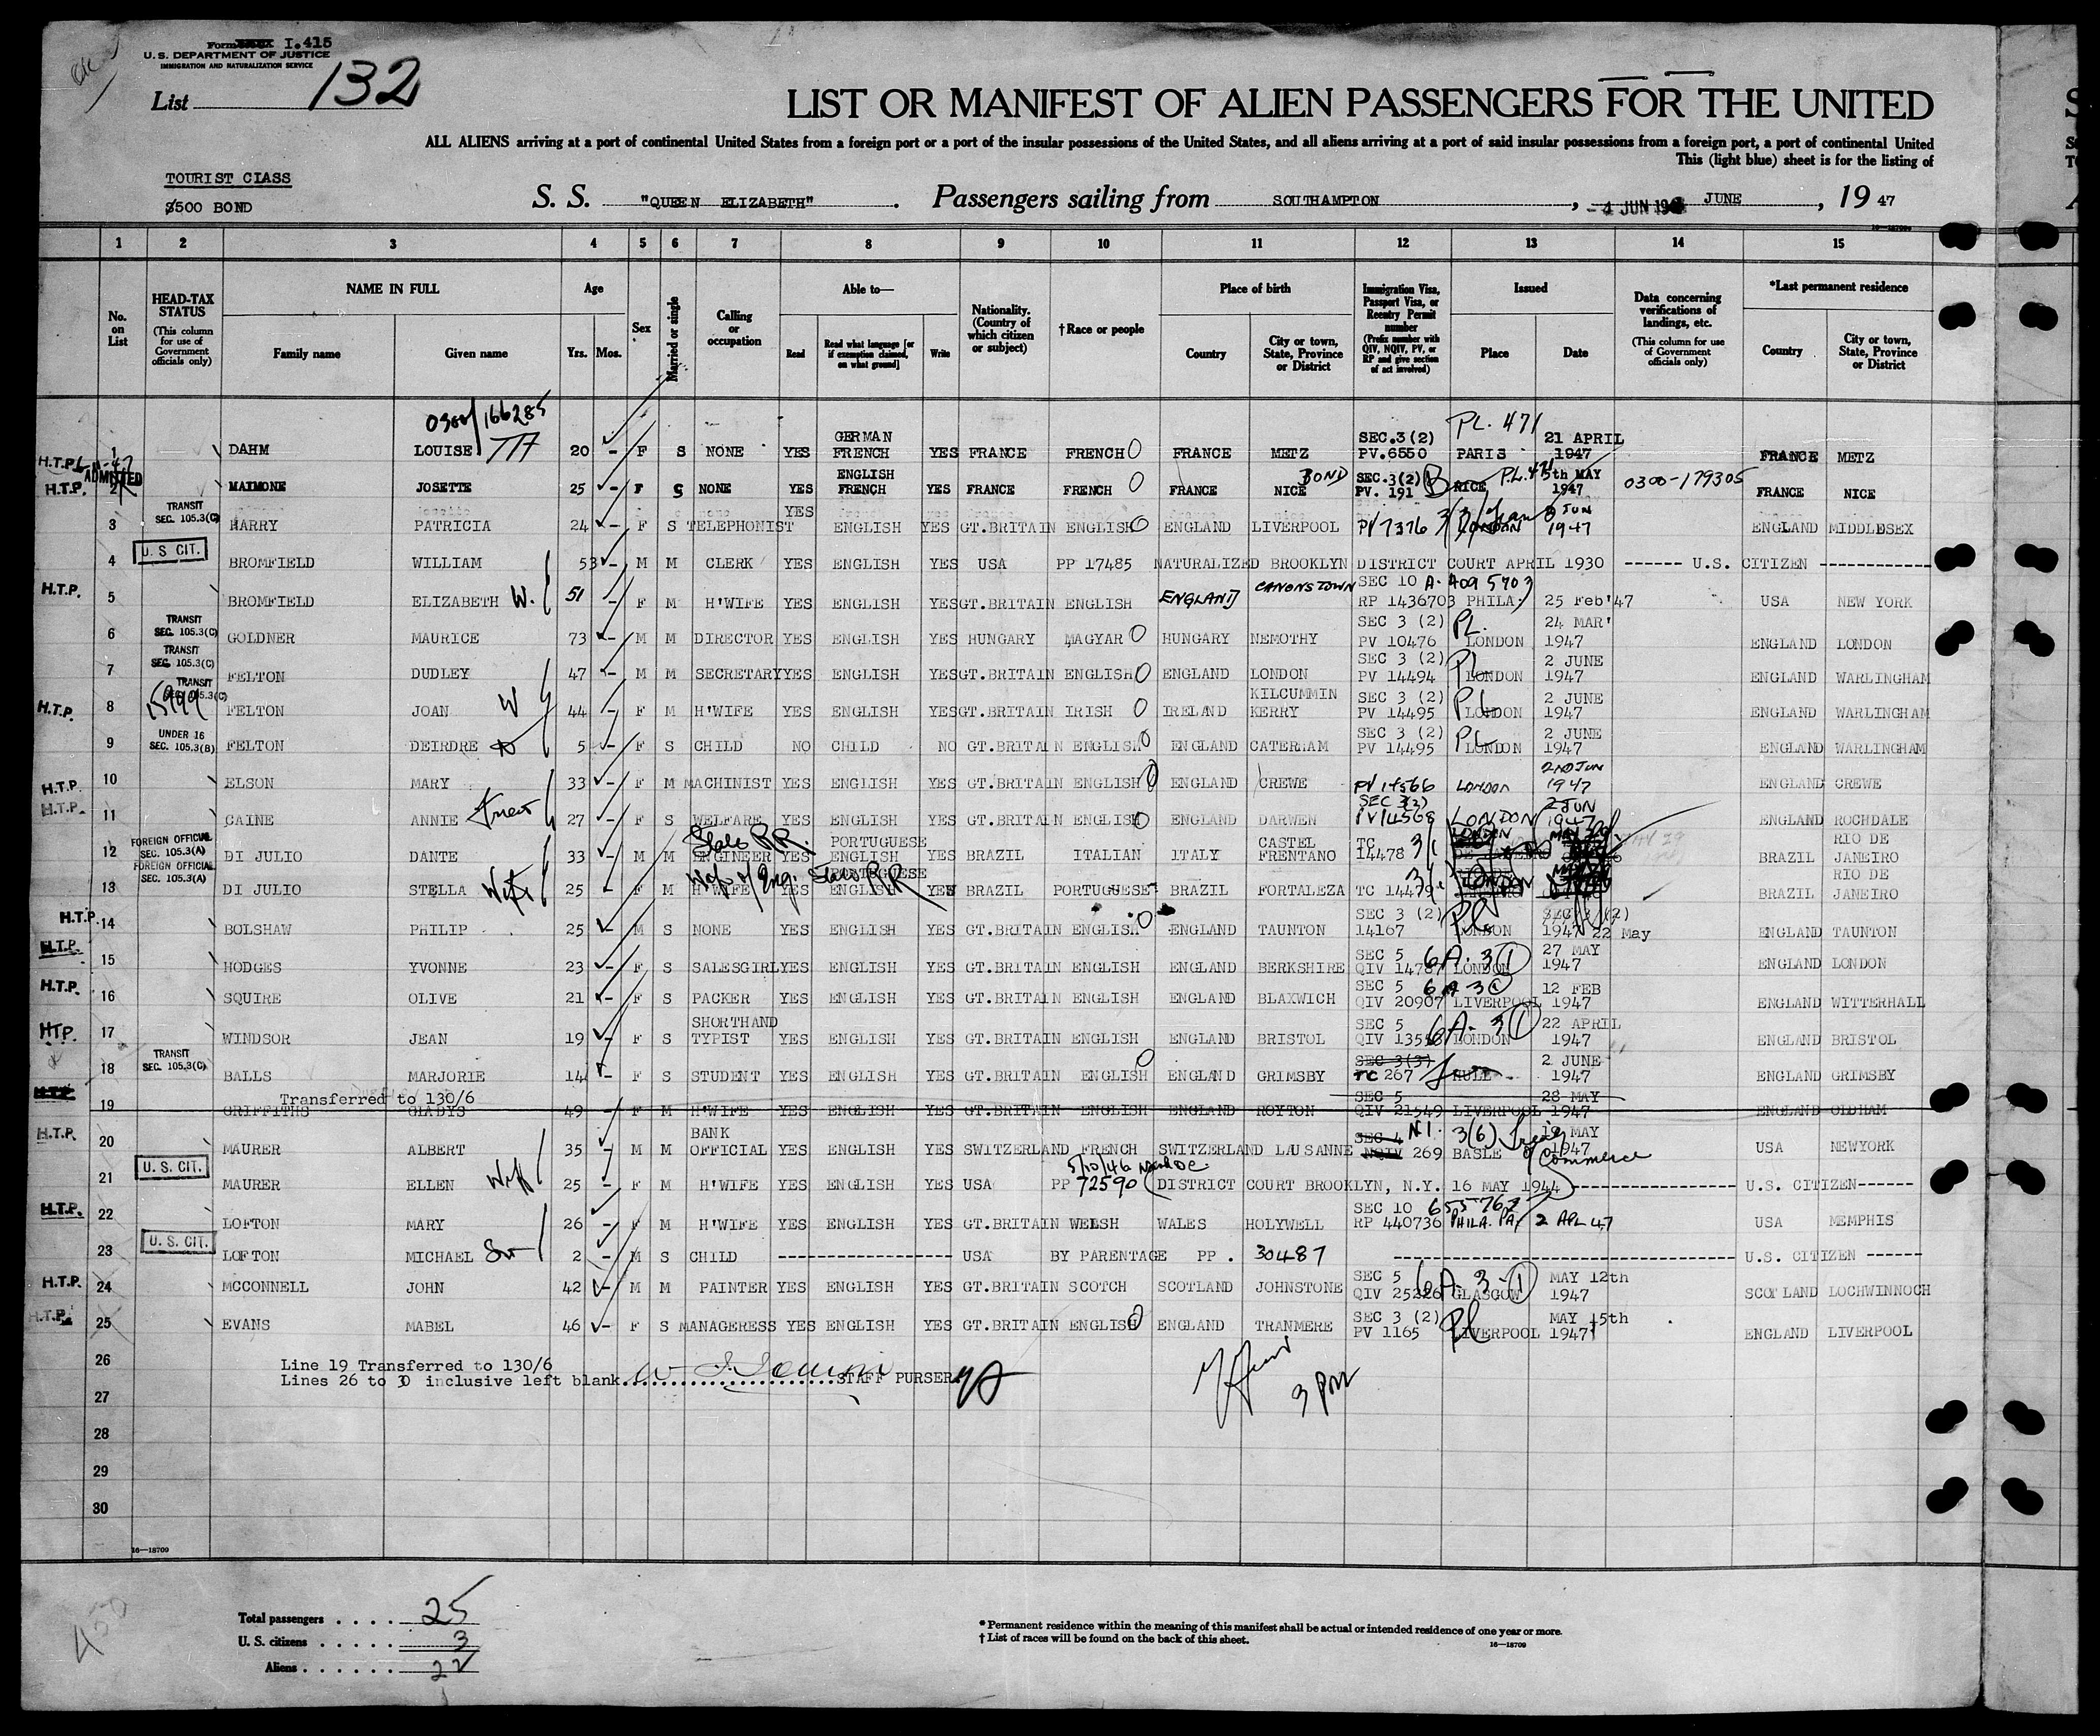 Form I.415
U. S. DEPARTMENT OF JUSTICE
IMMIGRATION AND NATURALIZATION SERVICE
List 132
LIST OR MANIFEST OF ALIEN PASSENGERS FOR THE UNITED
ALL ALIENS arriving at a port of continental United States from a foreign port or a port of the insular possessions of the United States, and all aliens arriving at a port of said insular possessions from a foreign port, a port of continental United
This (light blue) sheet is for the listing of
TOURIST CLASS
$500 BOND
S. S. "QUEEN ELIZABETH". Passengers sailing from SOUTHAMPTON, - 4 JUN JUNE, 19 47
16—18709
1 2 3 4 5 6 7 8 9 10 11 12 13 14 15
No. on List
HEAD-TAX STATUS (This column for use of Government officials only)
NAME IN FULL Family name Given name
Age Yrs. Mos.
Sex
Married or single
Calling or occupation
Able to— Read Read what language [or if exemption claimed, on what ground] Write
Nationality. (Country of which citizen or subject)
†Race or people
Place of birth Country City or town, State, Province or District
Immigration Visa, Passport Visa, or Reentry Permit number (Prefix number with QIV, NQIV, PV, or RP and give section of act involved)
Issued Place Date
Data concerning verifications of landings, etc. (This column for use of Government officials only)
*Last permanent residence Country City or town, State, Province or District
0300/166285 PL. 471
H.T.P. 1 DAHM LOUISE 20 - F S NONE YES GERMAN FRENCH YES FRANCE FRENCH FRANCE METZ SEC.3(2) PV.6550 PARIS 21 APRIL 1947 FRANCE METZ
ADMITTED
H.T.P. 2 MAIMONE JOSETTE 25 - F S NONE YES ENGLISH FRENCH YES FRANCE FRENCH FRANCE NICE BOND SEC.3(2) PV. 191 B NICE P.L. 471 5th MAY 1947 0300-179305 FRANCE NICE
3 TRANSIT SEC. 105.3(C) HARRY PATRICIA 24 - F S TELEPHONIST YES ENGLISH YES GT.BRITAIN ENGLISH ENGLAND LIVERPOOL PV 7376 LONDON 3 JUN 1947 ENGLAND MIDDLESEX
4 U. S. CIT. BROMFIELD WILLIAM 53 - M M CLERK YES ENGLISH YES USA PP 17485 NATURALIZED BROOKLYN DISTRICT COURT APRIL 1930 ------ U.S. CITIZEN -----------
H.T.P. 5 BROMFIELD ELIZABETH W. 51 - F M H'WIFE YES ENGLISH YES GT.BRITAIN ENGLISH ENGLAND CANONSTOWN SEC 10 A-4095703 RP 1436703 PHILA. 25 Feb'47 USA NEW YORK
6 TRANSIT SEC. 105.3(C) GOLDNER MAURICE 73 - M M DIRECTOR YES ENGLISH YES HUNGARY MAGYAR HUNGARY NEMOTHY SEC 3 (2) PV 10476 PL. LONDON 24 MAR' 1947 ENGLAND LONDON
7 TRANSIT SEC. 105.3(C) FELTON DUDLEY 47 - M M SECRETARY YES ENGLISH YES GT.BRITAIN ENGLISH ENGLAND LONDON SEC 3 (2) PV 14494 PL LONDON 2 JUNE 1947 ENGLAND WARLINGHAM
H.T.P. 8 TRANSIT SEC. 105.3(C) FELTON JOAN W 44 - F M H'WIFE YES ENGLISH YES GT.BRITAIN IRISH IRELAND KILCUMMIN KERRY SEC 3 (2) PV 14495 PL LONDON 2 JUNE 1947 ENGLAND WARLINGHAM
9 UNDER 16 SEC. 105.3(B) FELTON DEIRDRE D 5 - F S CHILD NO CHILD NO GT.BRITAIN ENGLISH ENGLAND CATERHAM SEC 3 (2) PV 14495 PL LONDON 2 JUNE 1947 ENGLAND WARLINGHAM
H.T.P. 10 ELSON MARY 33 - F M MACHINIST YES ENGLISH YES GT.BRITAIN ENGLISH ENGLAND CREWE PV 14566 LONDON 2ND JUN 1947 ENGLAND CREWE
H.T.P. 11 CAINE ANNIE 27 - F S WELFARE YES ENGLISH YES GT.BRITAIN ENGLISH ENGLAND DARWEN SEC 3(2) PV 14568 LONDON 2 JUN 1947 ENGLAND ROCHDALE
12 FOREIGN OFFICIAL SEC. 105.3(A) DI JULIO DANTE 33 - M M ENGINEER YES PORTUGUESE ENGLISH YES BRAZIL ITALIAN ITALY CASTEL FRENTANO TC 14478 3/1 LONDON BRAZIL RIO DE JANEIRO
13 FOREIGN OFFICIAL SEC. 105.3(A) DI JULIO STELLA Wife 25 - F M H'WIFE Wife of Eng. YES PORTUGUESE ENGLISH YES BRAZIL PORTUGUESE BRAZIL FORTALEZA TC 14479 LONDON BRAZIL RIO DE JANEIRO
H.T.P. 14 BOLSHAW PHILIP 25 - M S NONE YES ENGLISH YES GT.BRITAIN ENGLISH ENGLAND TAUNTON SEC 3 (2) 14167 PL LONDON SEC 3 (2) 1947 22 May ENGLAND TAUNTON
H.T.P. 15 HODGES YVONNE 23 - F S SALESGIRL YES ENGLISH YES GT.BRITAIN ENGLISH ENGLAND BERKSHIRE SEC 5 QIV 14787 6A. 3(1) LONDON 27 MAY 1947 ENGLAND LONDON
H.T.P. 16 SQUIRE OLIVE 21 - F S PACKER YES ENGLISH YES GT.BRITAIN ENGLISH ENGLAND BLAXWICH SEC 5 QIV 20907 6A 3(1) LIVERPOOL 12 FEB 1947 ENGLAND WITTERHALL
H.T.P. 17 WINDSOR JEAN 19 - F S SHORTHAND TYPIST YES ENGLISH YES GT.BRITAIN ENGLISH ENGLAND BRISTOL SEC 5 QIV 13558 6A. 3(1) LONDON 22 APRIL 1947 ENGLAND BRISTOL
18 TRANSIT SEC. 105.3(C) BALLS MARJORIE 14 - F S STUDENT YES ENGLISH YES GT.BRITAIN ENGLISH ENGLAND GRIMSBY SEC 3(3) TC 267 HULL 2 JUNE 1947 ENGLAND GRIMSBY
Transferred to 130/6
H.T.P. 19 GRIFFITHS GLADYS 49 - F M H'WIFE YES ENGLISH YES GT.BRITAIN ENGLISH ENGLAND ROYTON SEC 5 QIV 21549 LIVERPOOL 28 MAY 1947 ENGLAND OLDHAM
H.T.P. 20 MAURER ALBERT 35 - M M BANK OFFICIAL YES ENGLISH YES SWITZERLAND FRENCH SWITZERLAND LAUSANNE SEC 4 N.I. NQIV 269 3(6) BASLE MAY 1947 of Commerce USA NEWYORK
21 U. S. CIT. MAURER ELLEN Wife 25 - F M H'WIFE YES ENGLISH YES USA PP 72590 5/10/46 Wash DC. DISTRICT COURT BROOKLYN, N.Y. 16 MAY 1944 ---------------- U.S. CITIZEN------
H.T.P. 22 LOFTON MARY 26 - F M H'WIFE YES ENGLISH YES GT.BRITAIN WELSH WALES HOLYWELL SEC 10 RP 440736 PHILA. PA. 2 APL 47 USA MEMPHIS
23 U. S. CIT. LOFTON MICHAEL Son 2 - M S CHILD ---------------- USA BY PARENTAGE PP . 30487 -------------------------------- U.S. CITIZEN ------
H.T.P. 24 MCCONNELL JOHN 42 - M M PAINTER YES ENGLISH YES GT.BRITAIN SCOTCH SCOTLAND JOHNSTONE SEC 5 QIV 25226 6A. 3-(1) GLASGOW MAY 12th 1947 SCOTLAND LOCHWINNOCH
H.T.P. 25 EVANS MABEL 46 - F S MANAGERESS YES ENGLISH YES GT.BRITAIN ENGLISH ENGLAND TRANMERE SEC 3 (2) PV 1165 PL LIVERPOOL MAY 15th 1947 ENGLAND LIVERPOOL
26 Line 19 Transferred to 130/6
Lines 26 to 30 inclusive left blank STAFF PURSER
3 PM
27
28
29
30
16—18709
Total passengers . . . . 25
U. S. citizens . . . . . 3
Aliens . . . . . . 22
* Permanent residence within the meaning of this manifest shall be actual or intended residence of one year or more.
† List of races will be found on the back of this sheet.
16—18709